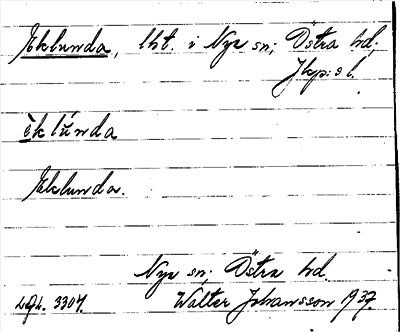 Eklunda, lht. i Nye sn; Östra hd;
Jkp:s l.
èklúnda
Eklunda.
Nye sn; Östra hd.
Lgh. 3307. Walter Johansson 1937.